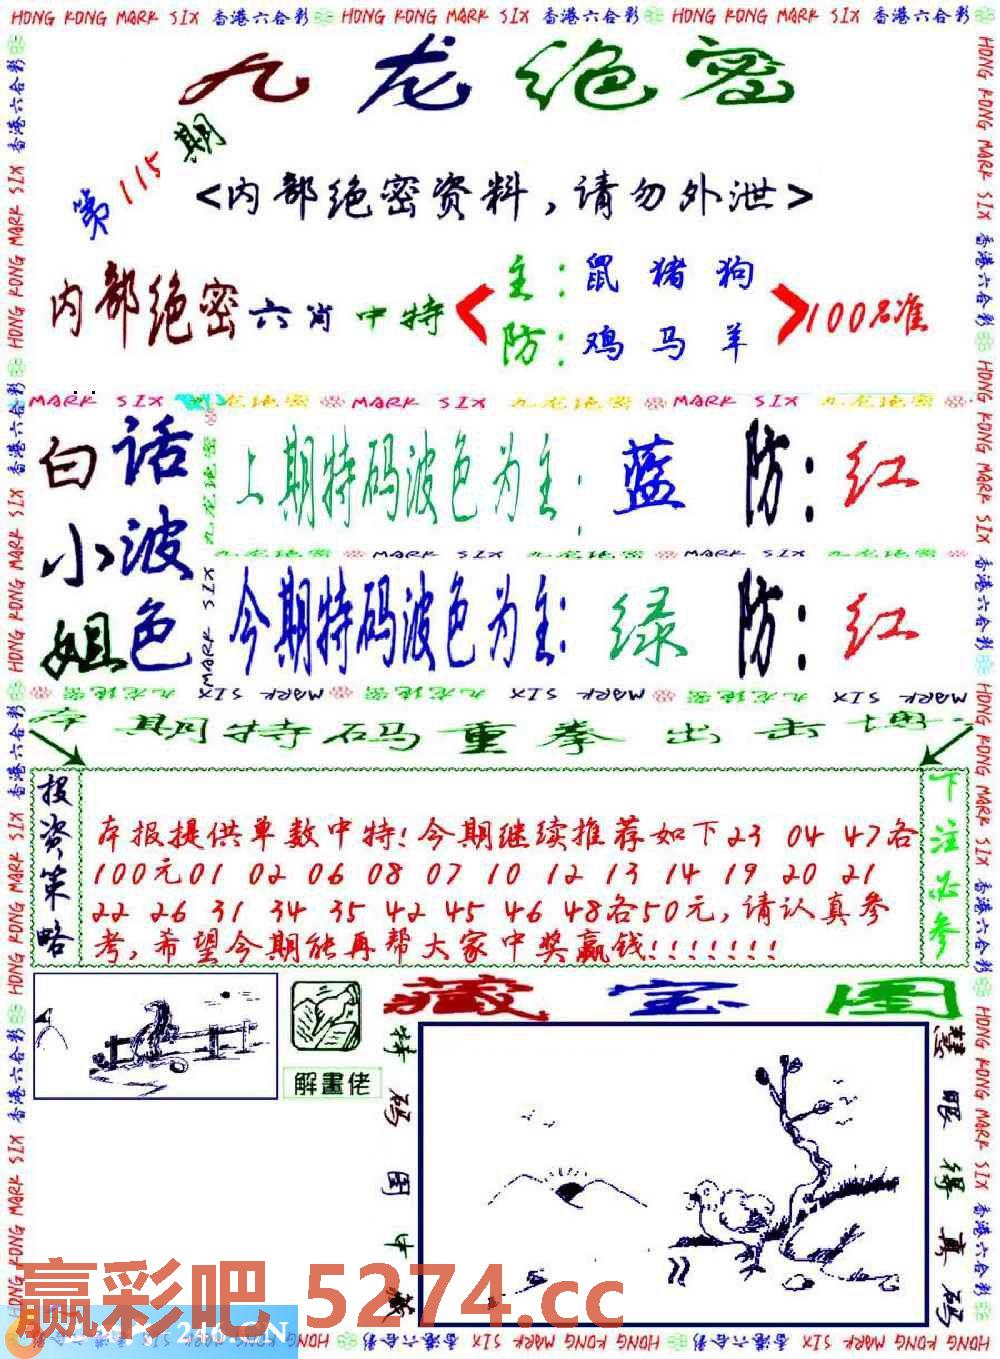 HONG KONG MARK SIX 香港六合彩 HONG KONG MARK SIX 香港六合彩 HONG KONG MARK SIX 香港六合彩
九龙绝密
第115期
<内部绝密资料,请勿外泄>
内部绝密六肖中特
主:鼠猪狗
防:鸡马羊
100%准
MARK SIX 九龙绝密 MARK SIX 九龙绝密 MARK SIX 九龙绝密
白小姐
话波色
上期特码波色为主:蓝 防:红
九龙绝密 MARK SIX 九龙绝密 MARK SIX 九龙绝密
今期特码波色为主:绿 防:红
MARK SIX 九龙绝密 MARK SIX 九龙绝密 MARK SIX 九龙绝密
本期特码重拳出击
投资策略
本报提供单数中特!今期继续推荐如下23 04 47各
100元01 02 06 08 07 10 12 13 14 19 20 21
22 26 31 34 35 42 45 46 48各50元,请认真参
考,希望今期能再帮大家中奖赢钱!!!!!!!
下注必参
藏宝图
解畫佬
特码图中藏
慧眼得真码
赢彩吧 5274.cc
246T.CN